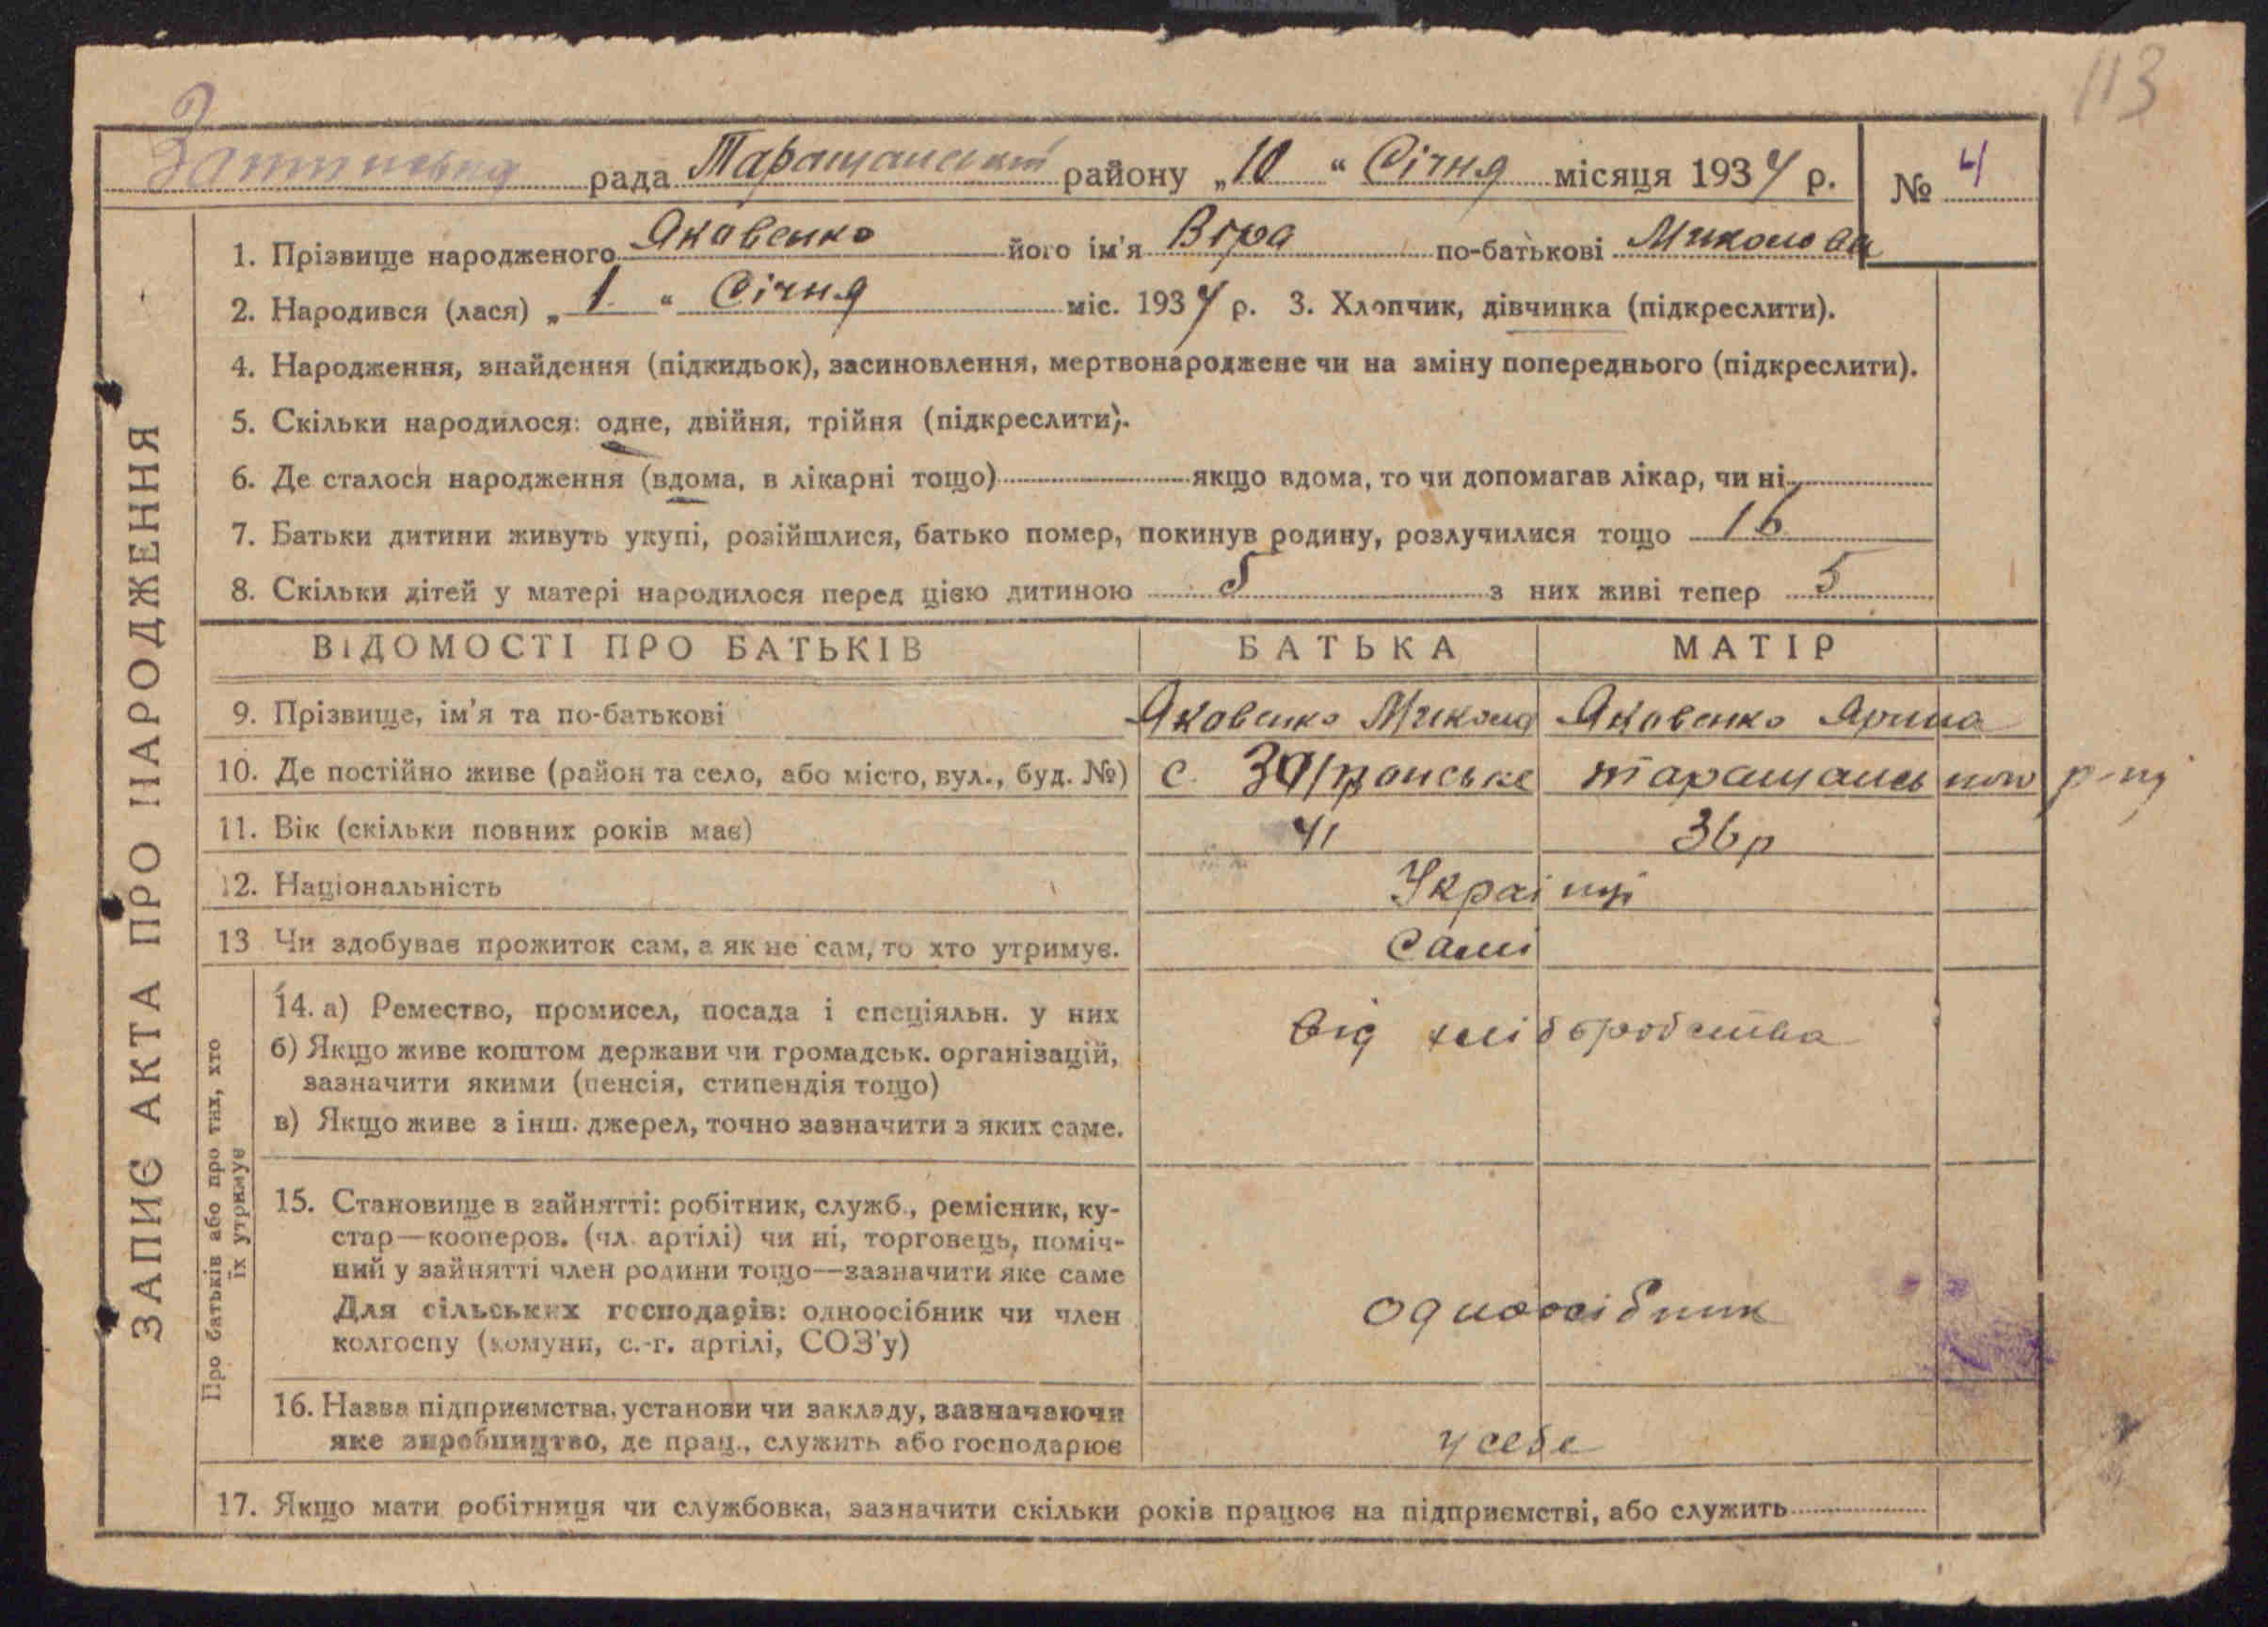 113
рада Таращанський району „10“ Січня місяця 1934 р. № 4
1. Прізвище народженого Яковенко його ім'я Віра по-батькові Миколова
2. Народився (лася) „1“ Січня міс. 1934 р. 3. Хлопчик, дівчинка (підкреслити).
4. Народження, знайдення (підкидьок), засиновлення, мертвонароджене чи на зміну попереднього (підкреслити).
5. Скільки народилося: одне, двійня, трійня (підкреслити).
6. Де сталося народження (вдома, в лікарні тощо) якщо вдома, то чи допомагав лікар, чи ні
7. Батьки дитини живуть укупі, розійшлися, батько помер, покинув родину, розлучилися тощо 16
8. Скільки дітей у матері народилося перед цією дитиною 5 з них живі тепер 5
ВІДОМОСТІ ПРО БАТЬКІВ БАТЬКА МАТІР
9. Прізвище, ім'я та по-батькові Яковенко Микола Яковенко Ярина
10. Де постійно живе (район та село, або місто, вул., буд. №) с. таращансь р-ну
11. Вік (скільки повних років має) 41 36р
12. Національність Українці
13 Чи здобуває прожиток сам, а як не сам, то хто утримує. Самі
14. а) Ремество, промисел, посада і спеціяльн. у них від хліборобства
б) Якщо живе коштом держави чи громадськ. організацій,
зазначити якими (пенсія, стипендія тощо)
в) Якщо живе з інш. джерел, точно зазначити з яких саме.
15. Становище в зайнятті: робітник, служб., ремісник, ку-
стар—кооперов. (чл. артілі) чи ні, торговець, поміч-
ний у зайнятті член родини тощо—зазначити яке саме
Для сільських господарів: одноосібник чи член одноосібник
колгоспу (комуни, с.-г. артілі, СОЗ'у)
16. Назва підприємства, установи чи закладу, зазначаючи
яке виробництво, де прац., служить або господарює у себе
17. Якщо мати робітниця чи службовка, зазначити скільки років працює на підприємстві, або служить
ЗАПИС АКТА ПРО НАРОДЖЕННЯ
Про батьків або про тих, хто
їх утримує